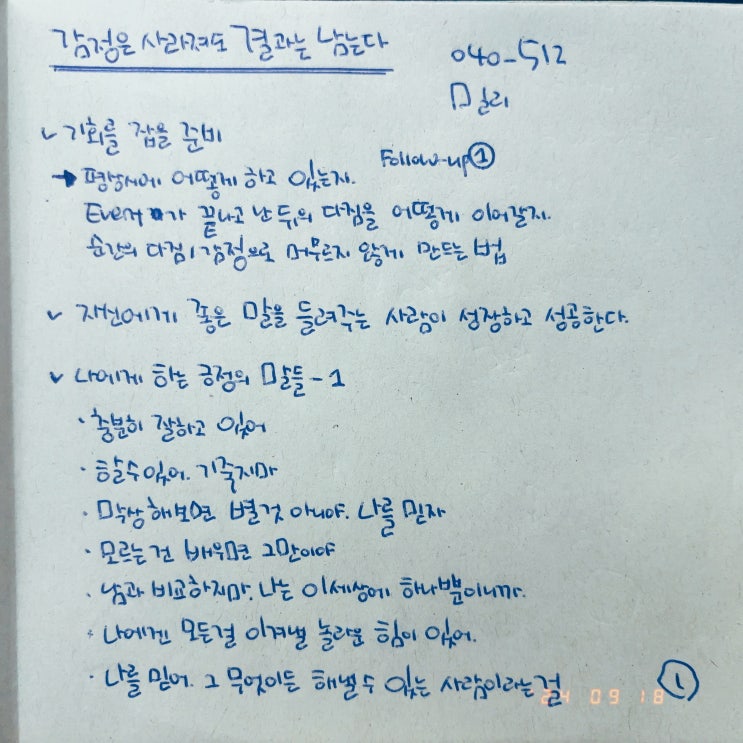 감정은 사라져도 결과는 남는다
040-512
밀리
✓ 기회를 잡을 준비
Follow-up ①
→ 평상시에 어떻게 하고 있는지.
Event가 끝나고 난 뒤의 다짐을 어떻게 이어갈지.
순간의 다짐, 감정으로 머무르지 않게 만드는 법
✓ 자신에게 좋은 말을 들려주는 사람이 성장하고 성공한다.
✓ 나에게 하는 긍정의 말들 - 1
· 충분히 잘하고 있어
· 할수있어. 기죽지마
· 막상 해보면 별것 아니야. 나를 믿자
· 모르는건 배우면 그만이야
· 남과 비교하지마. 나는 이세상에 하나뿐이니까.
· 나에겐 모든걸 이겨낼 놀라운 힘이 있어.
· 나를 믿어. 그 무엇이든 해낼수 있는 사람이라는걸
①
24 09 18